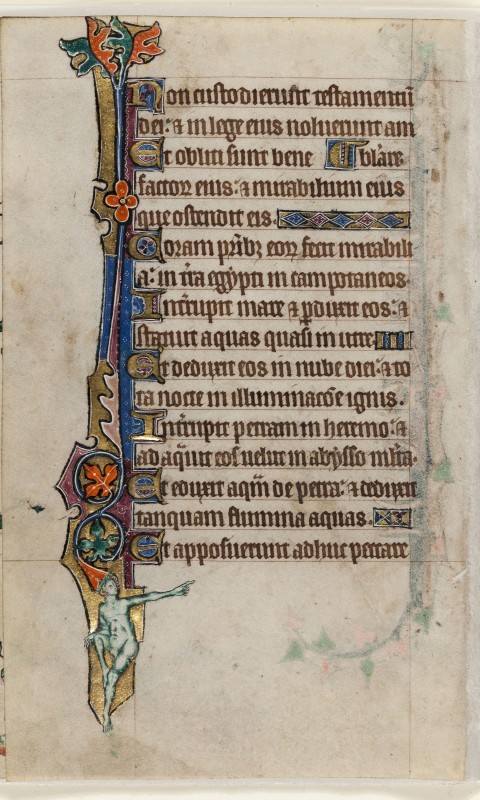 Non custodierunt testamentū
dei: & in lege eius noluerunt am
Et obliti sunt bene bulare
factoꝝ eius: & mirabilium eius
que ostendit eis.
Coram pr̄ibꝫ eoꝝ fecit mirabili
a: in tr̄a egypti in campo taneos.
Int̄rupit mare & ꝑduxit eos: &
statuit aquas quasi in utre
Et deduxit eos in nube diei: & to
ta nocte in illuminac̄oe ignis.
Int̄rupit petram in heremo: &
adaq̄uit eos uelut in abysso ml̄ta.
Et eduxit aq̄m de petra: & deduxit
tanquam flumina aquas.
Et apposuerunt adhuc peccare